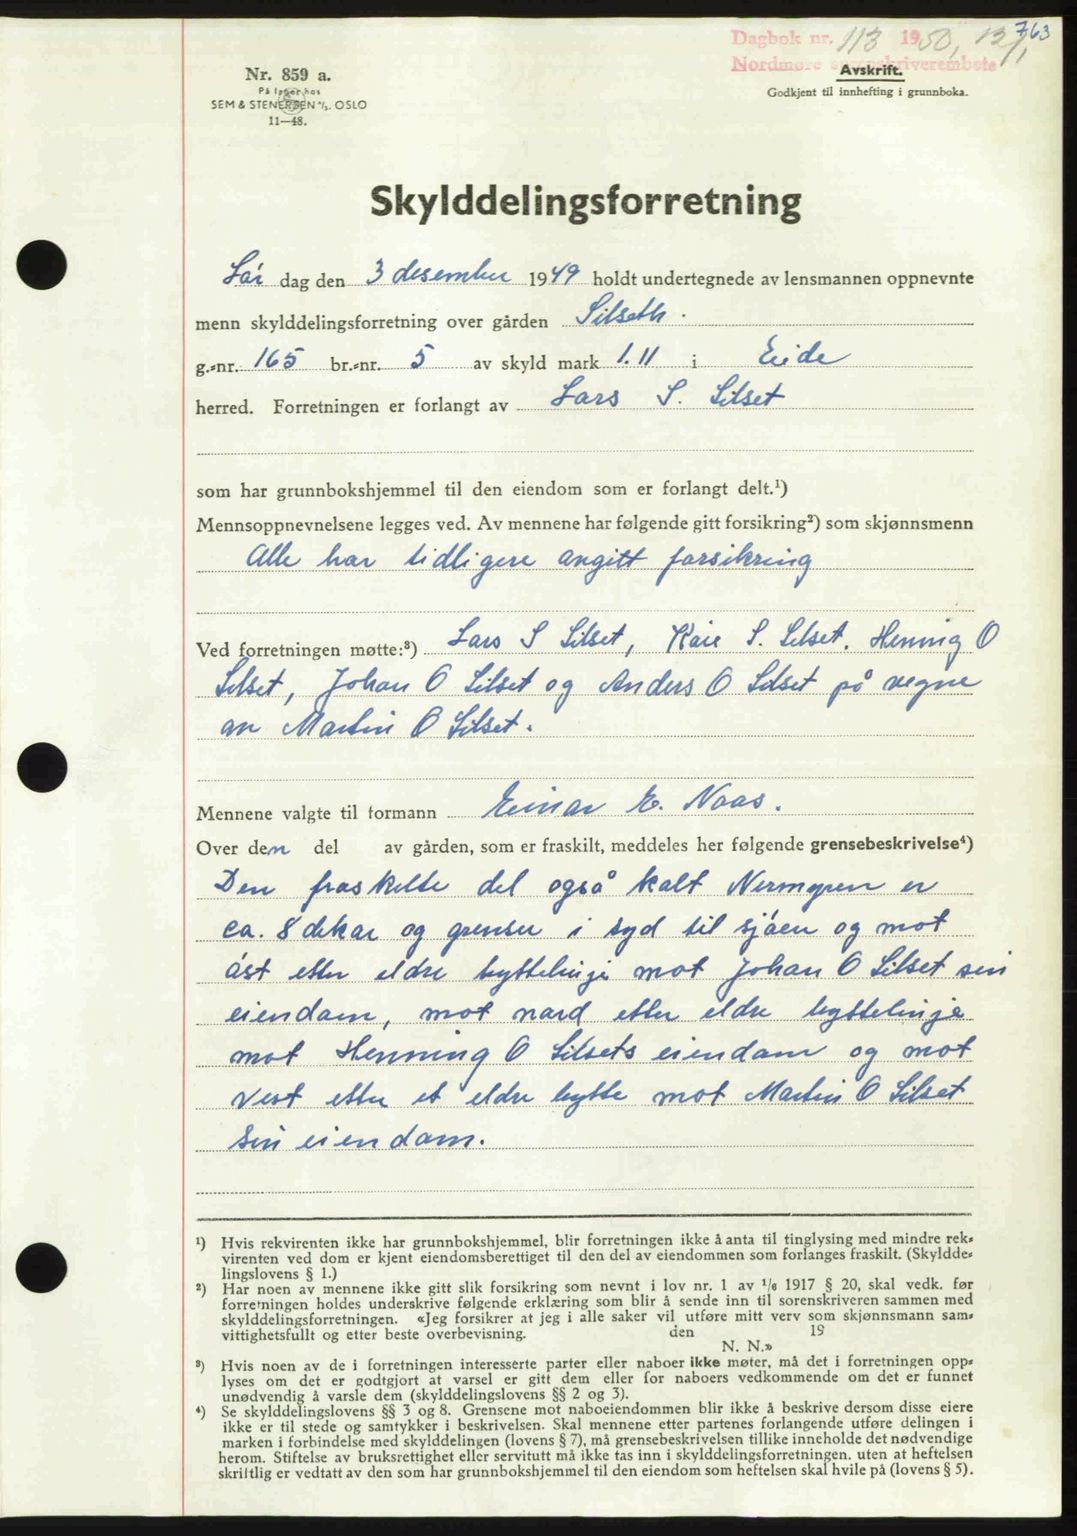 763
Dagbok nr. 113 1950, 13/1
Nordmøre sorenskriverembete
Avskrift.
Godkjent til innhefting i grunnboka.
Nr. 859 a.
På lager hos
SEM & STENERSEN A/S. OSLO
11—48.
Skylddelingsforretning
Lør dag den 3 desember 1949 holdt undertegnede av lensmannen oppnevnte
menn skylddelingsforretning over gården Silseth.
g.-nr. 165 br.-nr. 5 av skyld mark 1.11 i Eide
herred. Forretningen er forlangt av Lars S. Silset
som har grunnbokshjemmel til den eiendom som er forlangt delt.¹)
Mennsoppnevnelsene legges ved. Av mennene har følgende gitt forsikring²) som skjønnsmenn
Alle har tidligere avgitt forsikring
Ved forretningen møtte:³) Lars S Silset, Kåre S. Silset. Henning O
Silset, Johan O Silset og Anders O Silset på vegne
av Martin O Silset.
Mennene valgte til formann Einar E. Naas.
Over den del av gården, som er fraskilt, meddeles her følgende grensebeskrivelse⁴)
Den fraskilte del også kalt Nermyren er
ca. 8 dekar og grenser i syd til sjøen og mot
øst etter eldre byttelinje mot Johan O Silset sin
eiendom, mot nord etter eldre byttelinje
mot Henning O Silsets eiendom og mot
vest etter et eldre bytte mot Martin O Silset
sin eiendom.
¹) Hvis rekvirenten ikke har grunnbokshjemmel, blir forretningen ikke å anta til tinglysing med mindre rek-
virenten ved dom er kjent eiendomsberettiget til den del av eiendommen som forlanges fraskilt. (Skyldde-
lingslovens § 1.)
²) Har noen av mennene ikke gitt slik forsikring som nevnt i lov nr. 1 av ¹/₆ 1917 § 20, skal vedk. før
forretningen holdes underskrive følgende erklæring som blir å sende inn til sorenskriveren sammen med
skylddelingsforretningen. «Jeg forsikrer at jeg i alle saker vil utføre mitt verv som skjønnsmann sam-
vittighetsfullt og etter beste overbevisning. den 19
N. N.»
³) Hvis noen av de i forretningen interesserte parter eller naboer ikke møter, må det i forretningen opp-
lyses om det er godtgjort at varsel er gitt dem eller for naboers vedkommende om det er funnet
unødvendig å varsle dem (skylddelingslovens §§ 2 og 3).
⁴) Se skylddelingslovens §§ 3 og 8. Grensene mot naboeiendommen blir ikke å beskrive dersom disse eiere
ikke er til stede og samtykker i beskrivelsen. Skal mennene etter partenes forlangende utføre delingen i
marken i forbindelse med skylddelingen (lovens § 7), må grensebeskrivelsen tillike inneholde det nødvendige
herom. Stiftelse av bruksrettighet eller servitutt må ikke tas inn i skylddelingsforretningen. uten at heftelsen
skriftlig er vedtatt av den som har grunnbokshjemmel til den eiendom som heftelsen skal hvile på (lovens § 5).